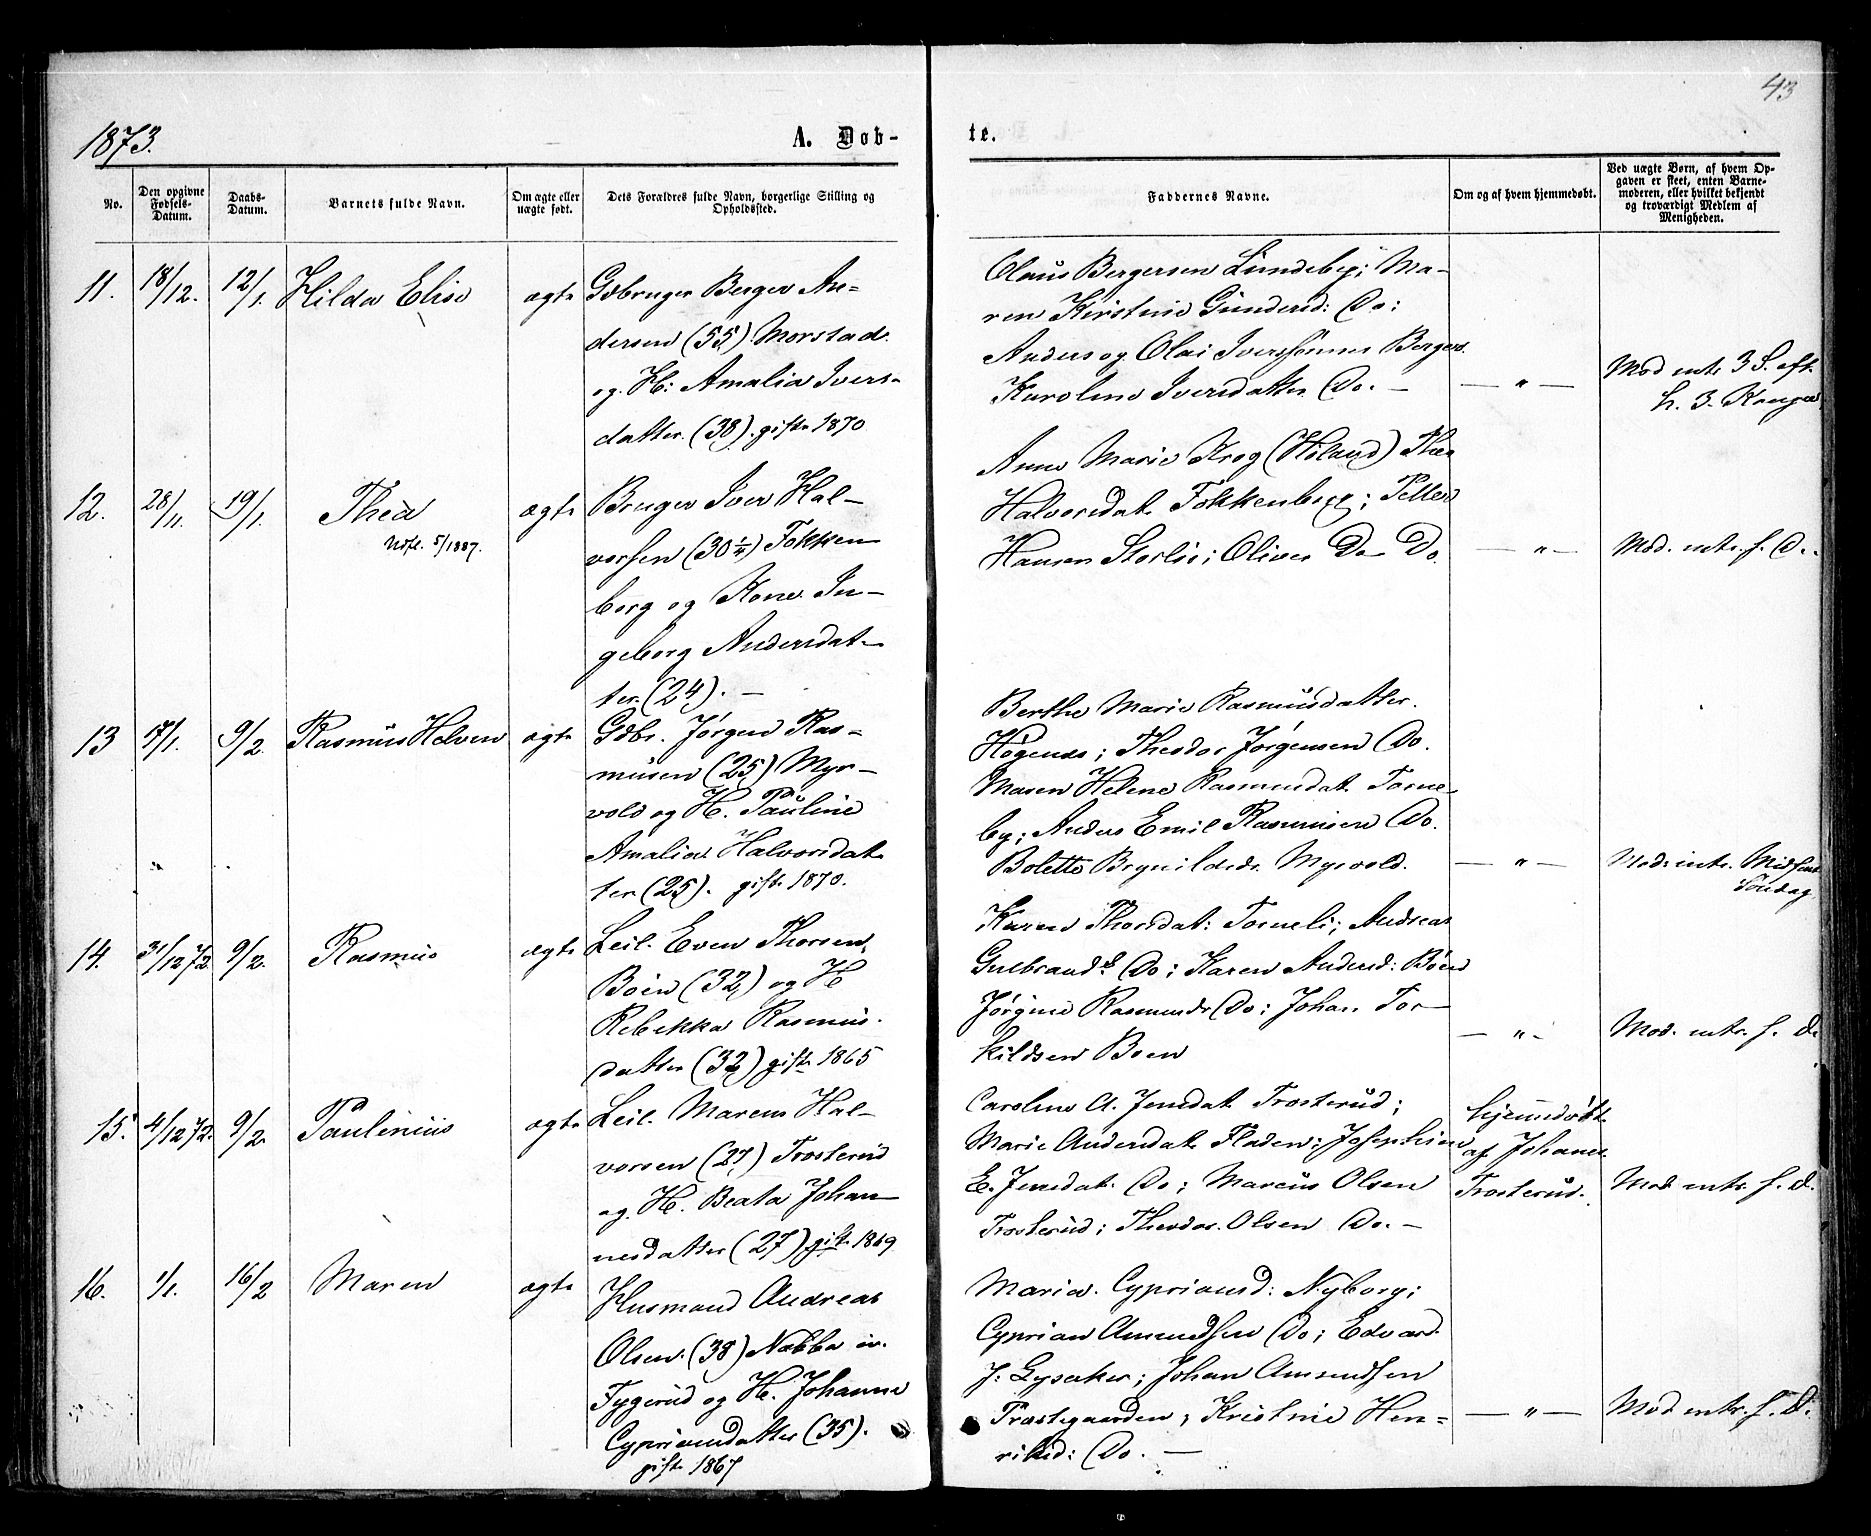 43
1873.
A. Døb-
te.
No.
Den opgivne Fødsels-Datum.
Daabs-Datum.
Barnets fulde Navn.
Om ægte eller uægte født.
Dets Forældres fulde Navn, borgerlige Stilling og Opholdssted.
Faddernes Navne.
Om og af hvem hjemmedøbt.
Ved uægte Børn, af hvem Op-
gaven er skeet, enten Barne-
moderen, eller hvilket bekjendt
og troværdigt Medlem af
Menigheden.
11. 18/12. 12/1. Hilda Elise ægte
Gdbruger Berger An-
dersen (55) Morstad
og H: Amalia Ivers-
datter. (38). gifte 1870
Olaus Bergersen Lundeby; Ma-
ren Kirstine Gundersd: Do:
Anders og Olai Iverssønner Bergers.
Karoline Iversdatter Do. —
— " —
Mod intr. 3 S. eft.
h. 3 Konger
12. 28/11. 19/1. Thea ægte
Udfl. 5/1887.
Bruger Iver Hal-
vorsen (30 1/4) Fokken
berg og Kone In-
geborg Andersdat-
ter. (24). —
Anne Marie Krog (Høland) Thea
Halvorsdat. Fokkenberg; Petter
Hansen Storlie; Oliver Do Do.
— " —
Mod. intr. s. D.
13 17/1. 9/2. Rasmus Helven ægte
Gdbr. Jørgen Ras-
musen (25) Myr-
vold og H. Pauline
Amalia Halvorsdat
ter (25). gifte 1870.
Berthe Marie Rasmusdatter.
Høgenes; Theodor Jørgensen Do.
Maren Helene Rasmusdat. Torne-
by; Anders Emil Rasmusen Do.
Bolette Brynildsdr. Myrvold.
— " —
Mod: intr. Midfaste
Søndag
14. 31/12 72. 9/2. Rasmus ægte
Leil. Even Thorsen
Boen (32) og H
Rebekka Rasmus-
datter (32) gifte 1865
Karen Thorsdat: Torneli; Andreas
Gulbrands. Do; Karen Andersd: Böen
Jørgine Rasmusdr Do; Johan Tor-
kildsen Boen
— " —
Mod. intr. s. D.
15. 4/12 72. 9/2. Paulinius ægte
Leil. Marcus Hal-
vorsen (27) Trosterud
og H. Beata Johan
nesdatter (27) gifte 1869
Caroline A. Jensdat. Trosterud;
Marie Andersdat. Fladen; Josephine
E. Jensdat. Do; Marcus Olsen
Trosterud; Theodor Olsen Do. —
hjemmedøbt
af Johannes
Trosterud.
Mod. intr. s. D.
16. 1/1. 16/2 Maren ægte
Husmand Andreas
Olsen (38) Nabba
Tygerud og H. Johanne
Cypriansdatter (35).
gifte 1867
Maria Cypriansd: Nyborg;
Cyprian Amundsen Do; Edvard
J. Lysaker; Johan Amundsen
Præstegaarden; Kristine Hen-
riksd: Do. —
— " —
Mod intr. s. D.